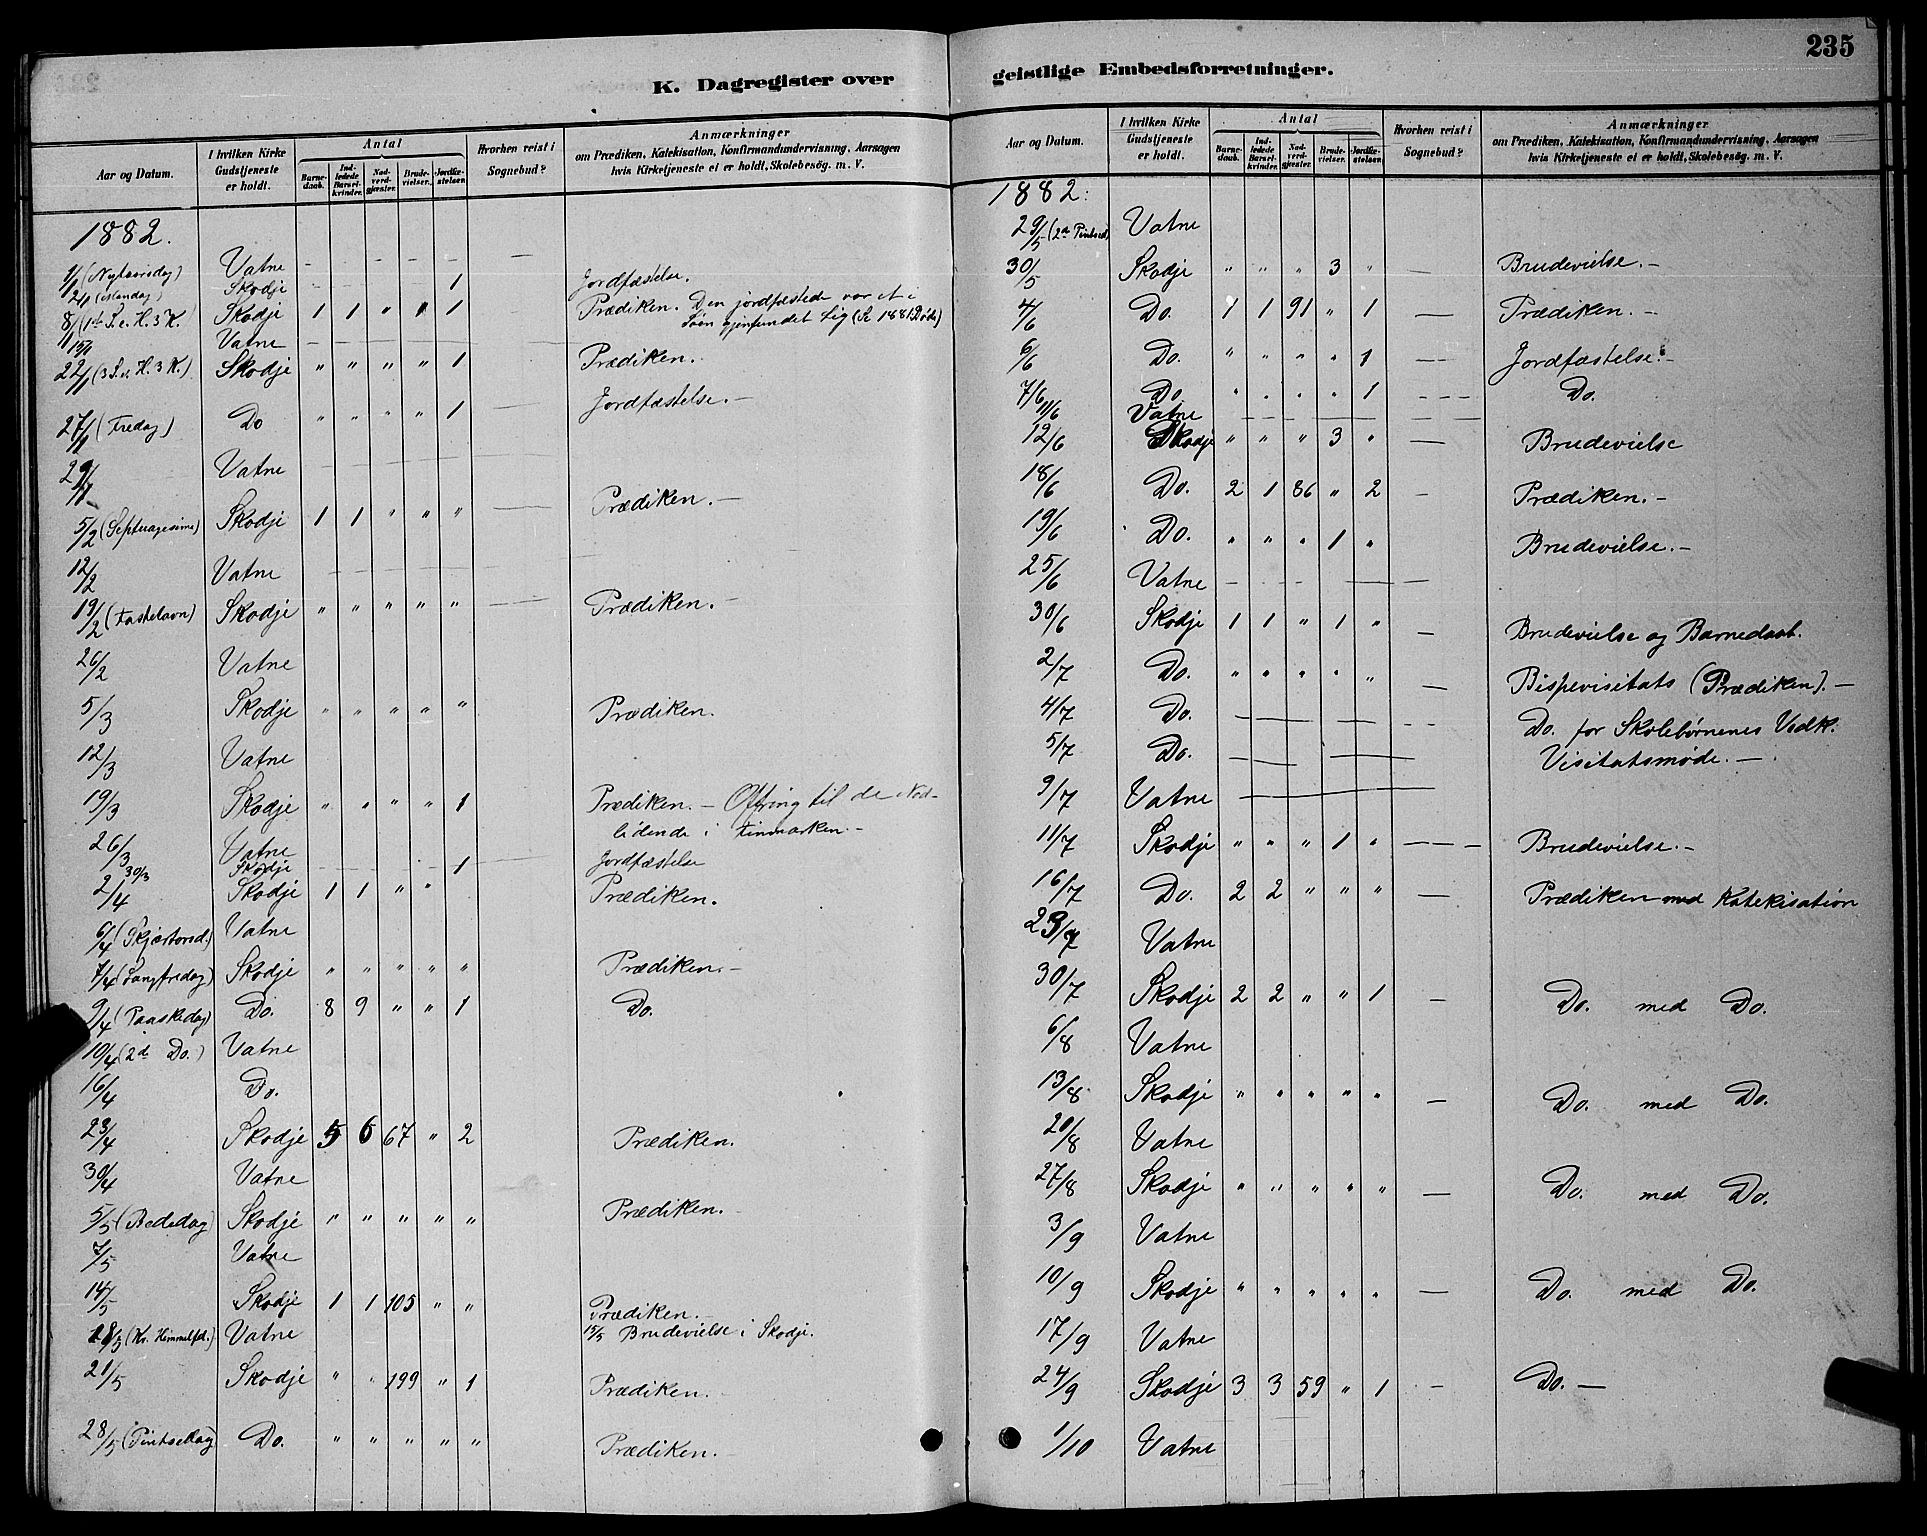 K. Dagregister over
Aar og Datum. | I hvilken Kirke Gudstjeneste er holdt. | Antal | Barnedaab. | Indledede Barselkvinder. | Nadverdgjæster. | Brudevielser. | Jordfæstelsen. | Hvorhen reist i Sognebud? | Anmærkninger om Prædiken, Katekisation, Konfirmandundervisning, Aarsagen hvis Kirketjeneste ei er holdt, Skolebesøg. m. V.
1882.
1/1 (Nytaarsdag) Vatne - - - - - —
2/1 (Mandag) Skodje 1 Jordfæstelse.
8/1 (1ste S. e. H. 3 K. Skodje 1 1 " 1 1 Prædiken. Den jordfæstede var et i
Søen gjenfundet Lig (Se 1881 Døde)
15/1 Vatne
22/1 (3 S. e. H. 3 K.) Skodje " " " " 1 Prædiken.
27/1 (Fredag) Do " " " " 1 — Jordfæstelse. —
29/1 Vatne
5/2 (Septuagesima) Skodje 1 1 " " " — Prædiken. —
12/2 Vatne
19/2 (Fastelavn) Skodje " " " " " — Prædiken. —
26/2 Vatne
5/3 Skodje " " " " " Prædiken.
12/3 Vatne
19/3 Skodje " " " " 1 Prædiken. — Offring til de Nød-
lidende i Finmarken. —
26/3 Vatne
30/3 Skodje 1 Jordfæstelse
2/4 Skodje 1 1 " " Prædiken.
6/4 (Skjærtorsd.) Vatne
7/4 (Langfredag) Skodje " " " " " Prædiken. —
9/4 (Paaskedag) Do. 8 9 " " 1 Do.
10/4 (2d Do.) Vatne
16/4 Do.
23/4 Skodje 5 6 67 " 2 Prædiken.
30/4 Vatne
5/5 (Bededag) Skodje " " " " " Prædiken.
7/5 Vatne
14/5 Skodje 1 1 105 " " Prædiken. —
18/5 (Kr. Himmelfd.) Vatne 15/5 Brudevielse i Skodje.
21/5 Skodje " " 199 " 1 Prædiken. —
28/5 (Pintsedag) Do. " " " " " Prædiken. —
235
geistlige Embedsforretninger.
Aar og Datum. | I hvilken Kirke Gudstjeneste er holdt. | Antal | Barnedaab. | Indledede Barselkvinder. | Nadverdgjæster. | Brudevielser. | Jordfæstelsen. | Hvorhen reist i Sognebud? | Anmærkninger om Prædiken, Katekisation, Konfirmandundervisning, Aarsagen hvis Kirketjeneste ei er holdt, Skolebesøg. m. V.
1882:
29/5 (2d Pintsed) Vatne
30/5 Skodje " " " 3 " — Brudevielse. —
4/6 Do. 1 1 91 " 1 — Prædiken. —
6/6 Do. " " " " 1 — Jordfæstelse. —
7/6 Do. " " " " 1 - - - Do.
11/6 Vatne
12/6 Skodje " " " 3 " — Brudevielse
18/6 Do. 2 1 86 " 2 — Prædiken. —
19/6 Do. " " " 1 " Brudevielse. —
25/6 Vatne
30/6 Skodje 1 1 " 1 " — Brudevielse og Barnedaab.
2/7 Do. " " " " " — Bispevisitats (Prædiken). —
4/7 Do. Do. for Skolebørnenes Vedk.
5/7 Do. Visitatsmøde. —
9/7 Vatne
11/7 Skodje " " " 1 " — Brudevielse. —
16/7 Do. 2 2 " " " — Prædiken med Katekisation
23/7 Vatne
30/7 Skodje 2 2 " " 1 — Do. med Do.
6/8 Vatne
13/8 Skodje " " " " " — Do. med Do.
20/8 Vatne
27/8 Skodje " " " " " — Do. med Do.
3/9 Vatne
10/9 Skodje " " " " " — Do. med Do.
17/9 Vatne
24/9 Skodje 3 3 59 " 1 — Do. —
1/10 Vatne